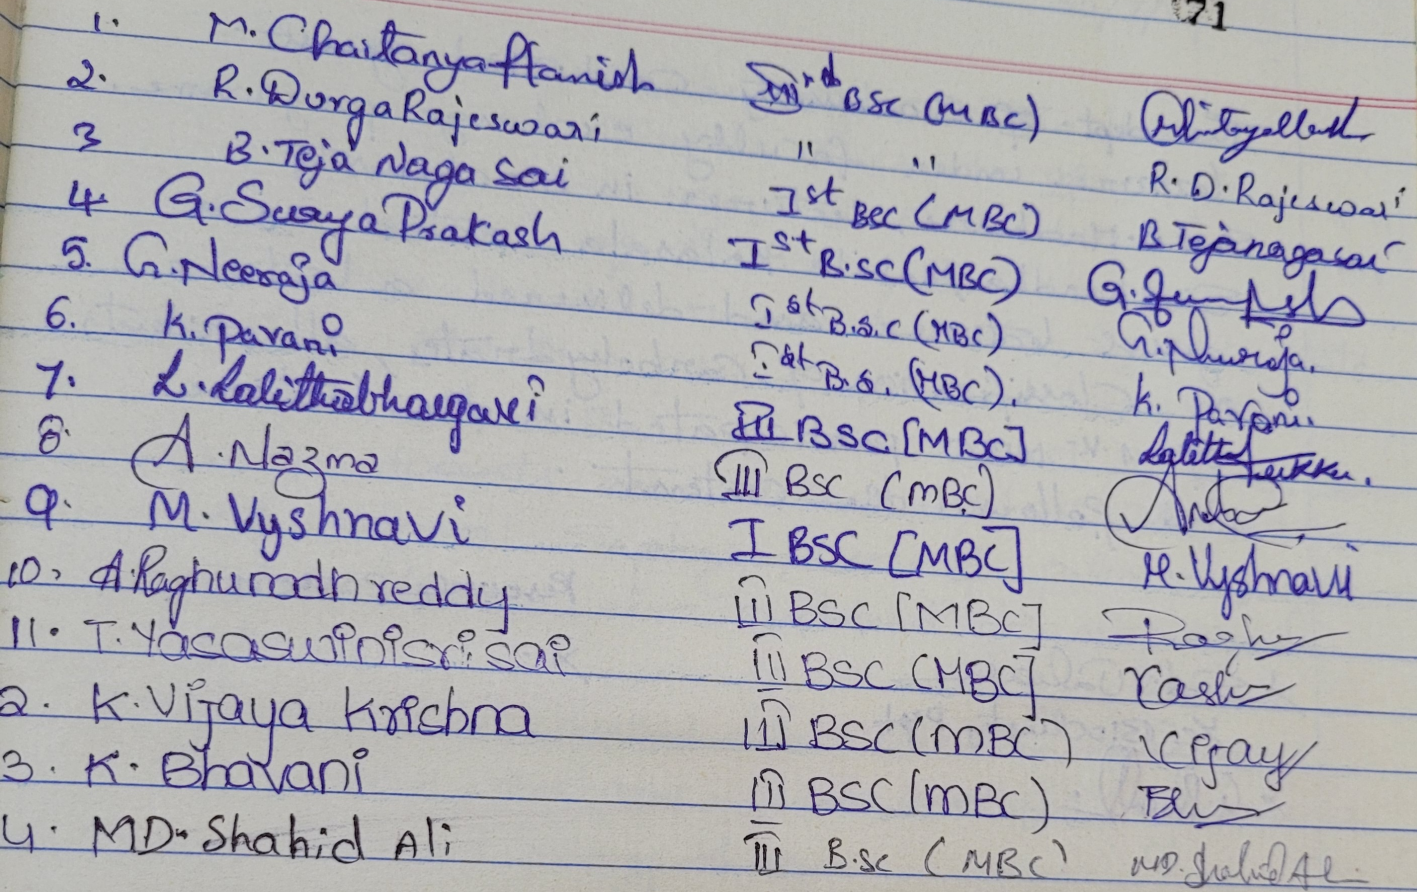 71
1. M. Chaitanya Harish IIIrd BSC (MBC)
2. R. Durga Rajeswari " " R. D. Rajeswari
3 B. Teja Naga Sai Ist BSC (MBC) B Tejanagasai
4 G. Surya Prakash Ist B.SC (MBC) G.
5. G. Neeraja Ist B.S.C (MBC) G. Neeraja.
6. K. Pavani Ist B.S. (MBC). K. Pavani.
7. L. Lalithabhargavi III BSC [MBC] Lalitha
8. A. Nazma III BSC (MBC)
9. M. Vyshnavi I BSC [MBC] M. Vyshnavi
10, A. Raghunadh reddy III BSC [MBC] Raghu
11. T. Yasaswinisri sai III BSC (MBC] Yashu
2. K. Vijaya Krishna III BSC (MBC) Vijay
3. K. Bhavani III BSC (MBC)
4. MD. Shahid Ali III B.SC (MBC) MD. Shahid Ali